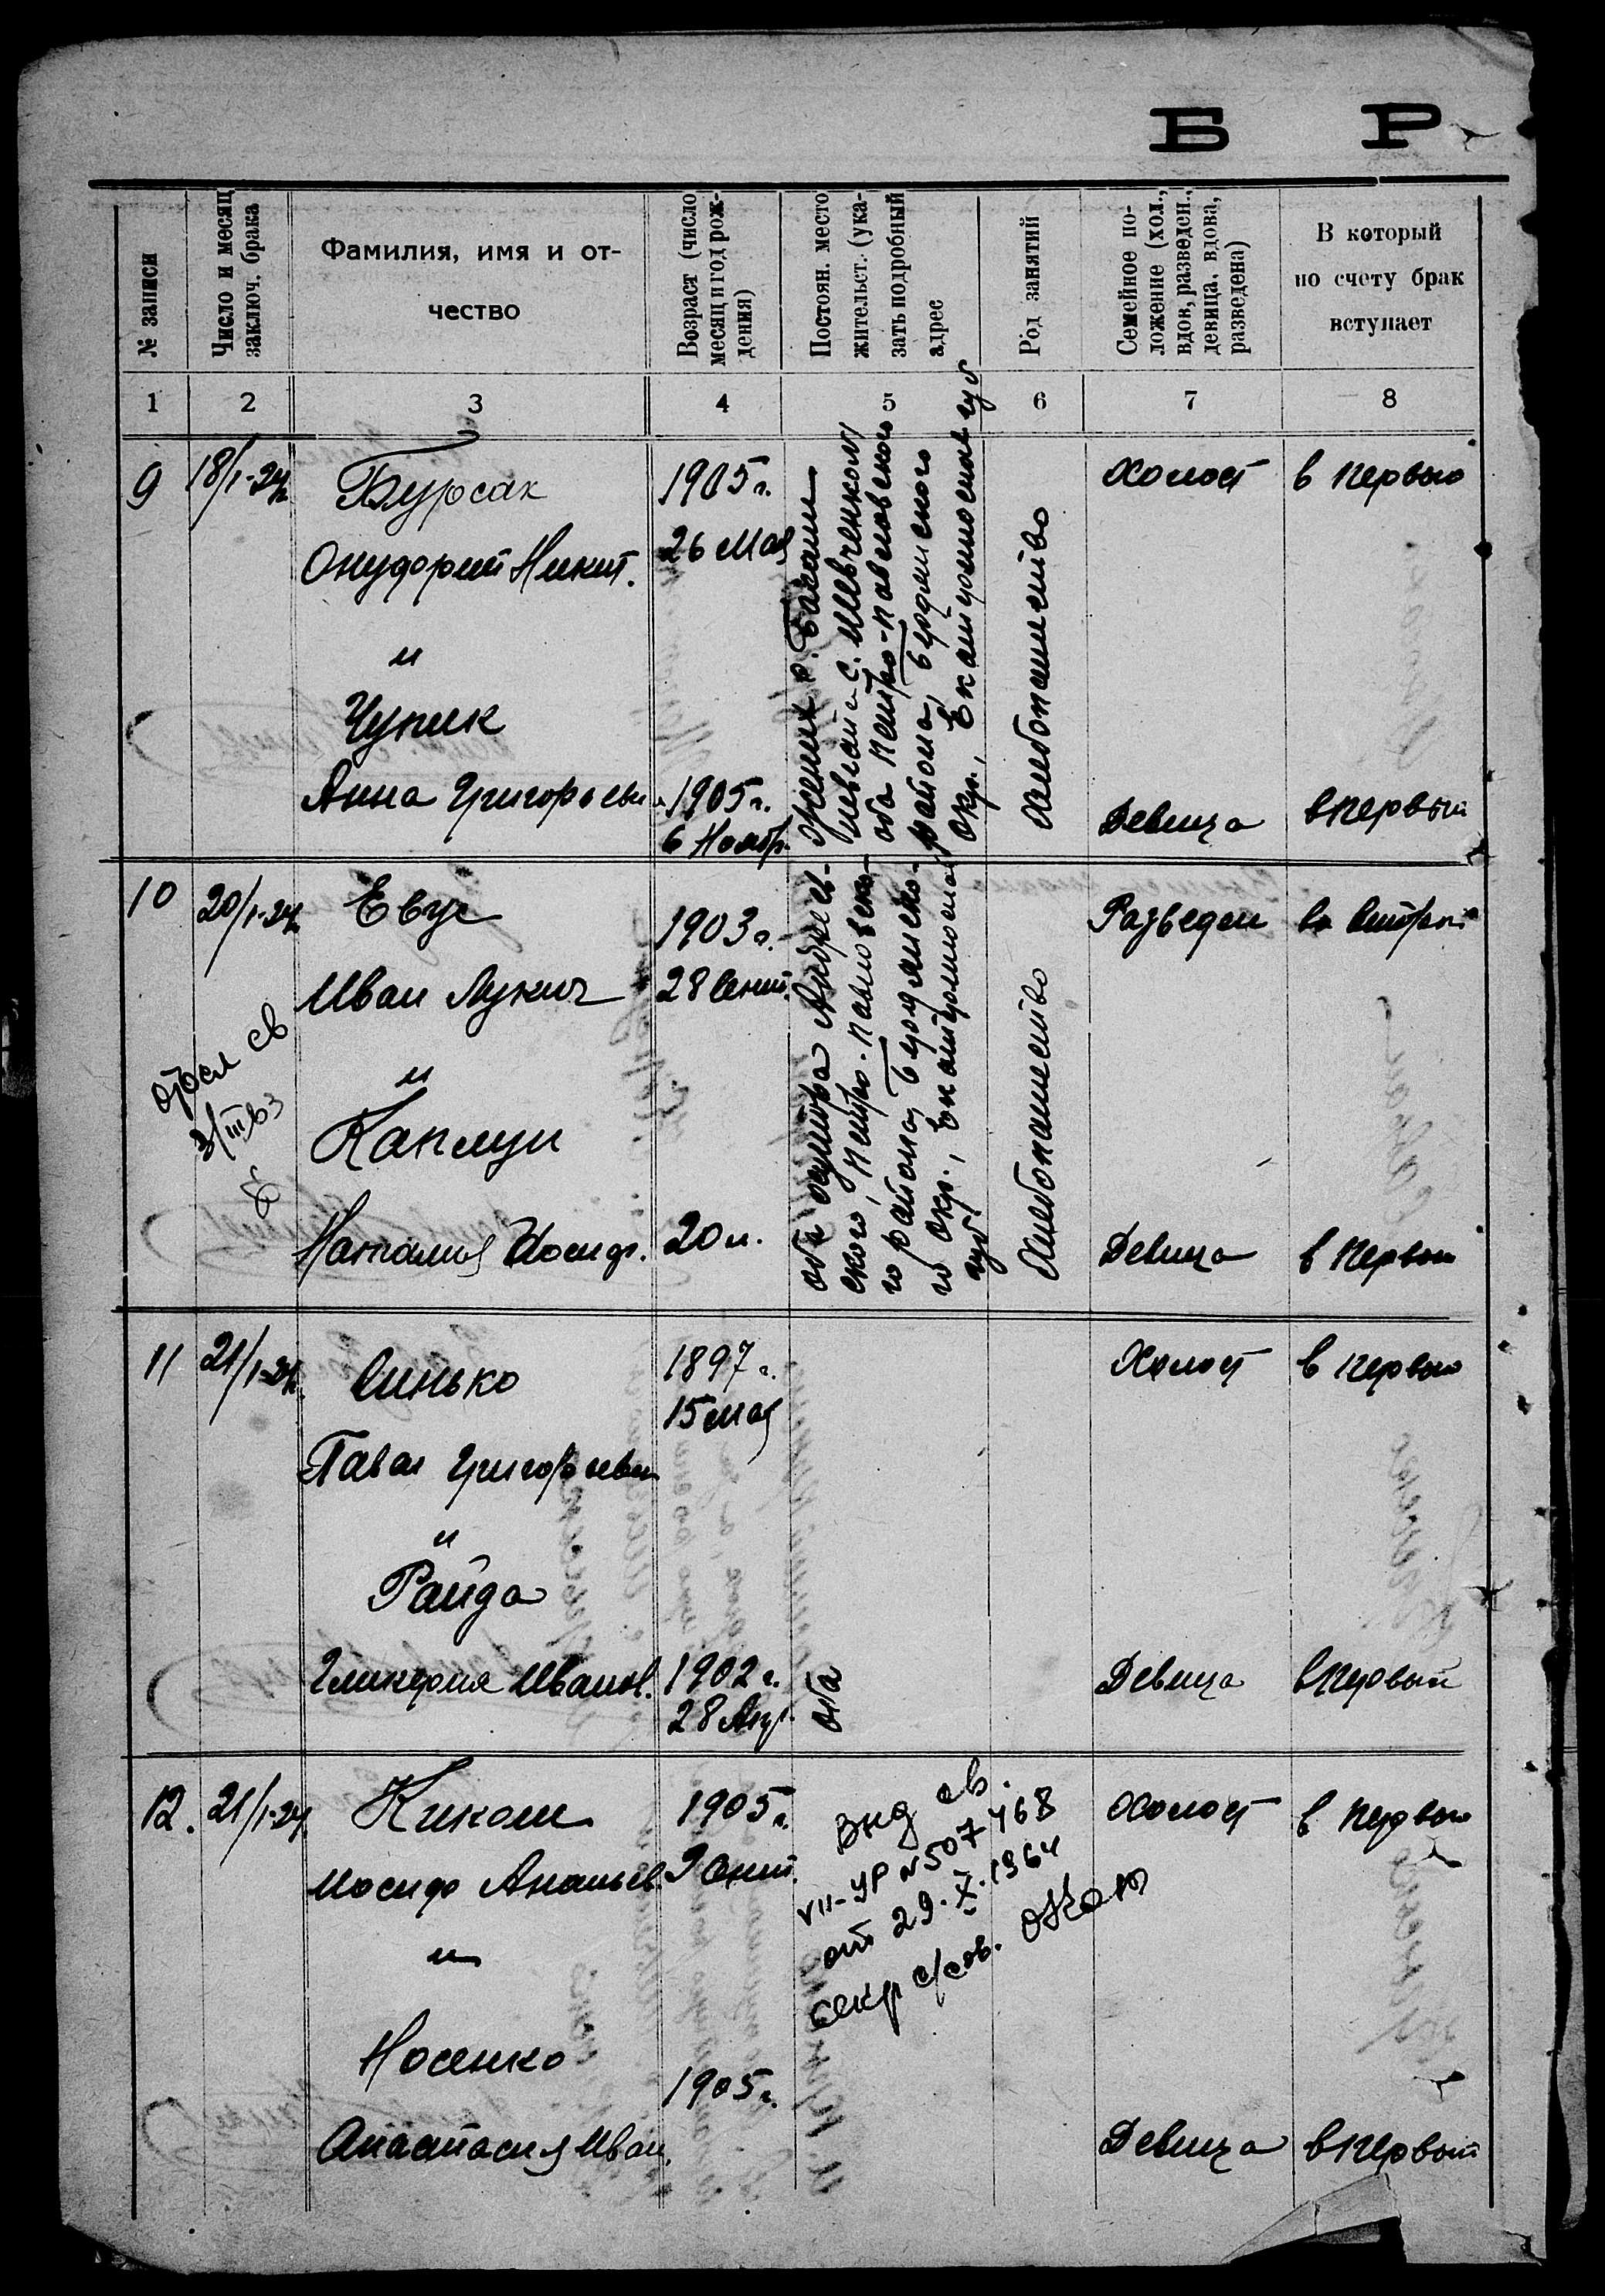 Б Р
№ записи
Число и месяц
заключ. брака
Фамилия, имя и от-
чество
Возраст (число
месяц и год рож-
дения)
Постоян. место
жительст. (ука-
зать подробный
адрес
Род занятий
Семейное по-
ложение (хол.,
вдов, разведен.,
девица, вдова,
разведена)
В который
по счету брак
вступает
1 2 3 4 5 6 7 8
9 18/I-24
Бурсак
Онуфрий Никит.
и
Чупик
Анна Григорьевн
1905 г.
26 Мая
1905 г.
6 Ноябр.
жених с. Богати
с. Шевченково
оба Петро-Павловского
района, Бердянского
окр., Екатеринослав губ
Хлебопашество
Холост
Девица
в первый
в первый
10 20/I-24
Евус
Иван Лукич
и
Каплун
Наталия Иосиф.
1903 г.
28 Сент.
20 л.
оба хутора Андреев-
ского, Петро-Павловско-
го района, Бердянско-
го окр., Екатеринослав
губ
Хлебопашество
Разведен
Девица
во второй
в первый
отосл св
11 21/I-24
Синько
Павел Григорьевич
и
Райда
Гликерия Иванов.
1897 г.
15 мая
1902 г.
28 Апр.
оба
Холост
Девица
в первый
в первый
12. 21/I-24
Кикош
Иосиф Ананьев.
и
Носенко
Анастасия Иван.
1905 г.
9 Сент.
1905 г.
Выд св.
VII-УР №507468
от 29.X.1964
секр с/сов.
Холост
Девица
в первый
в первый